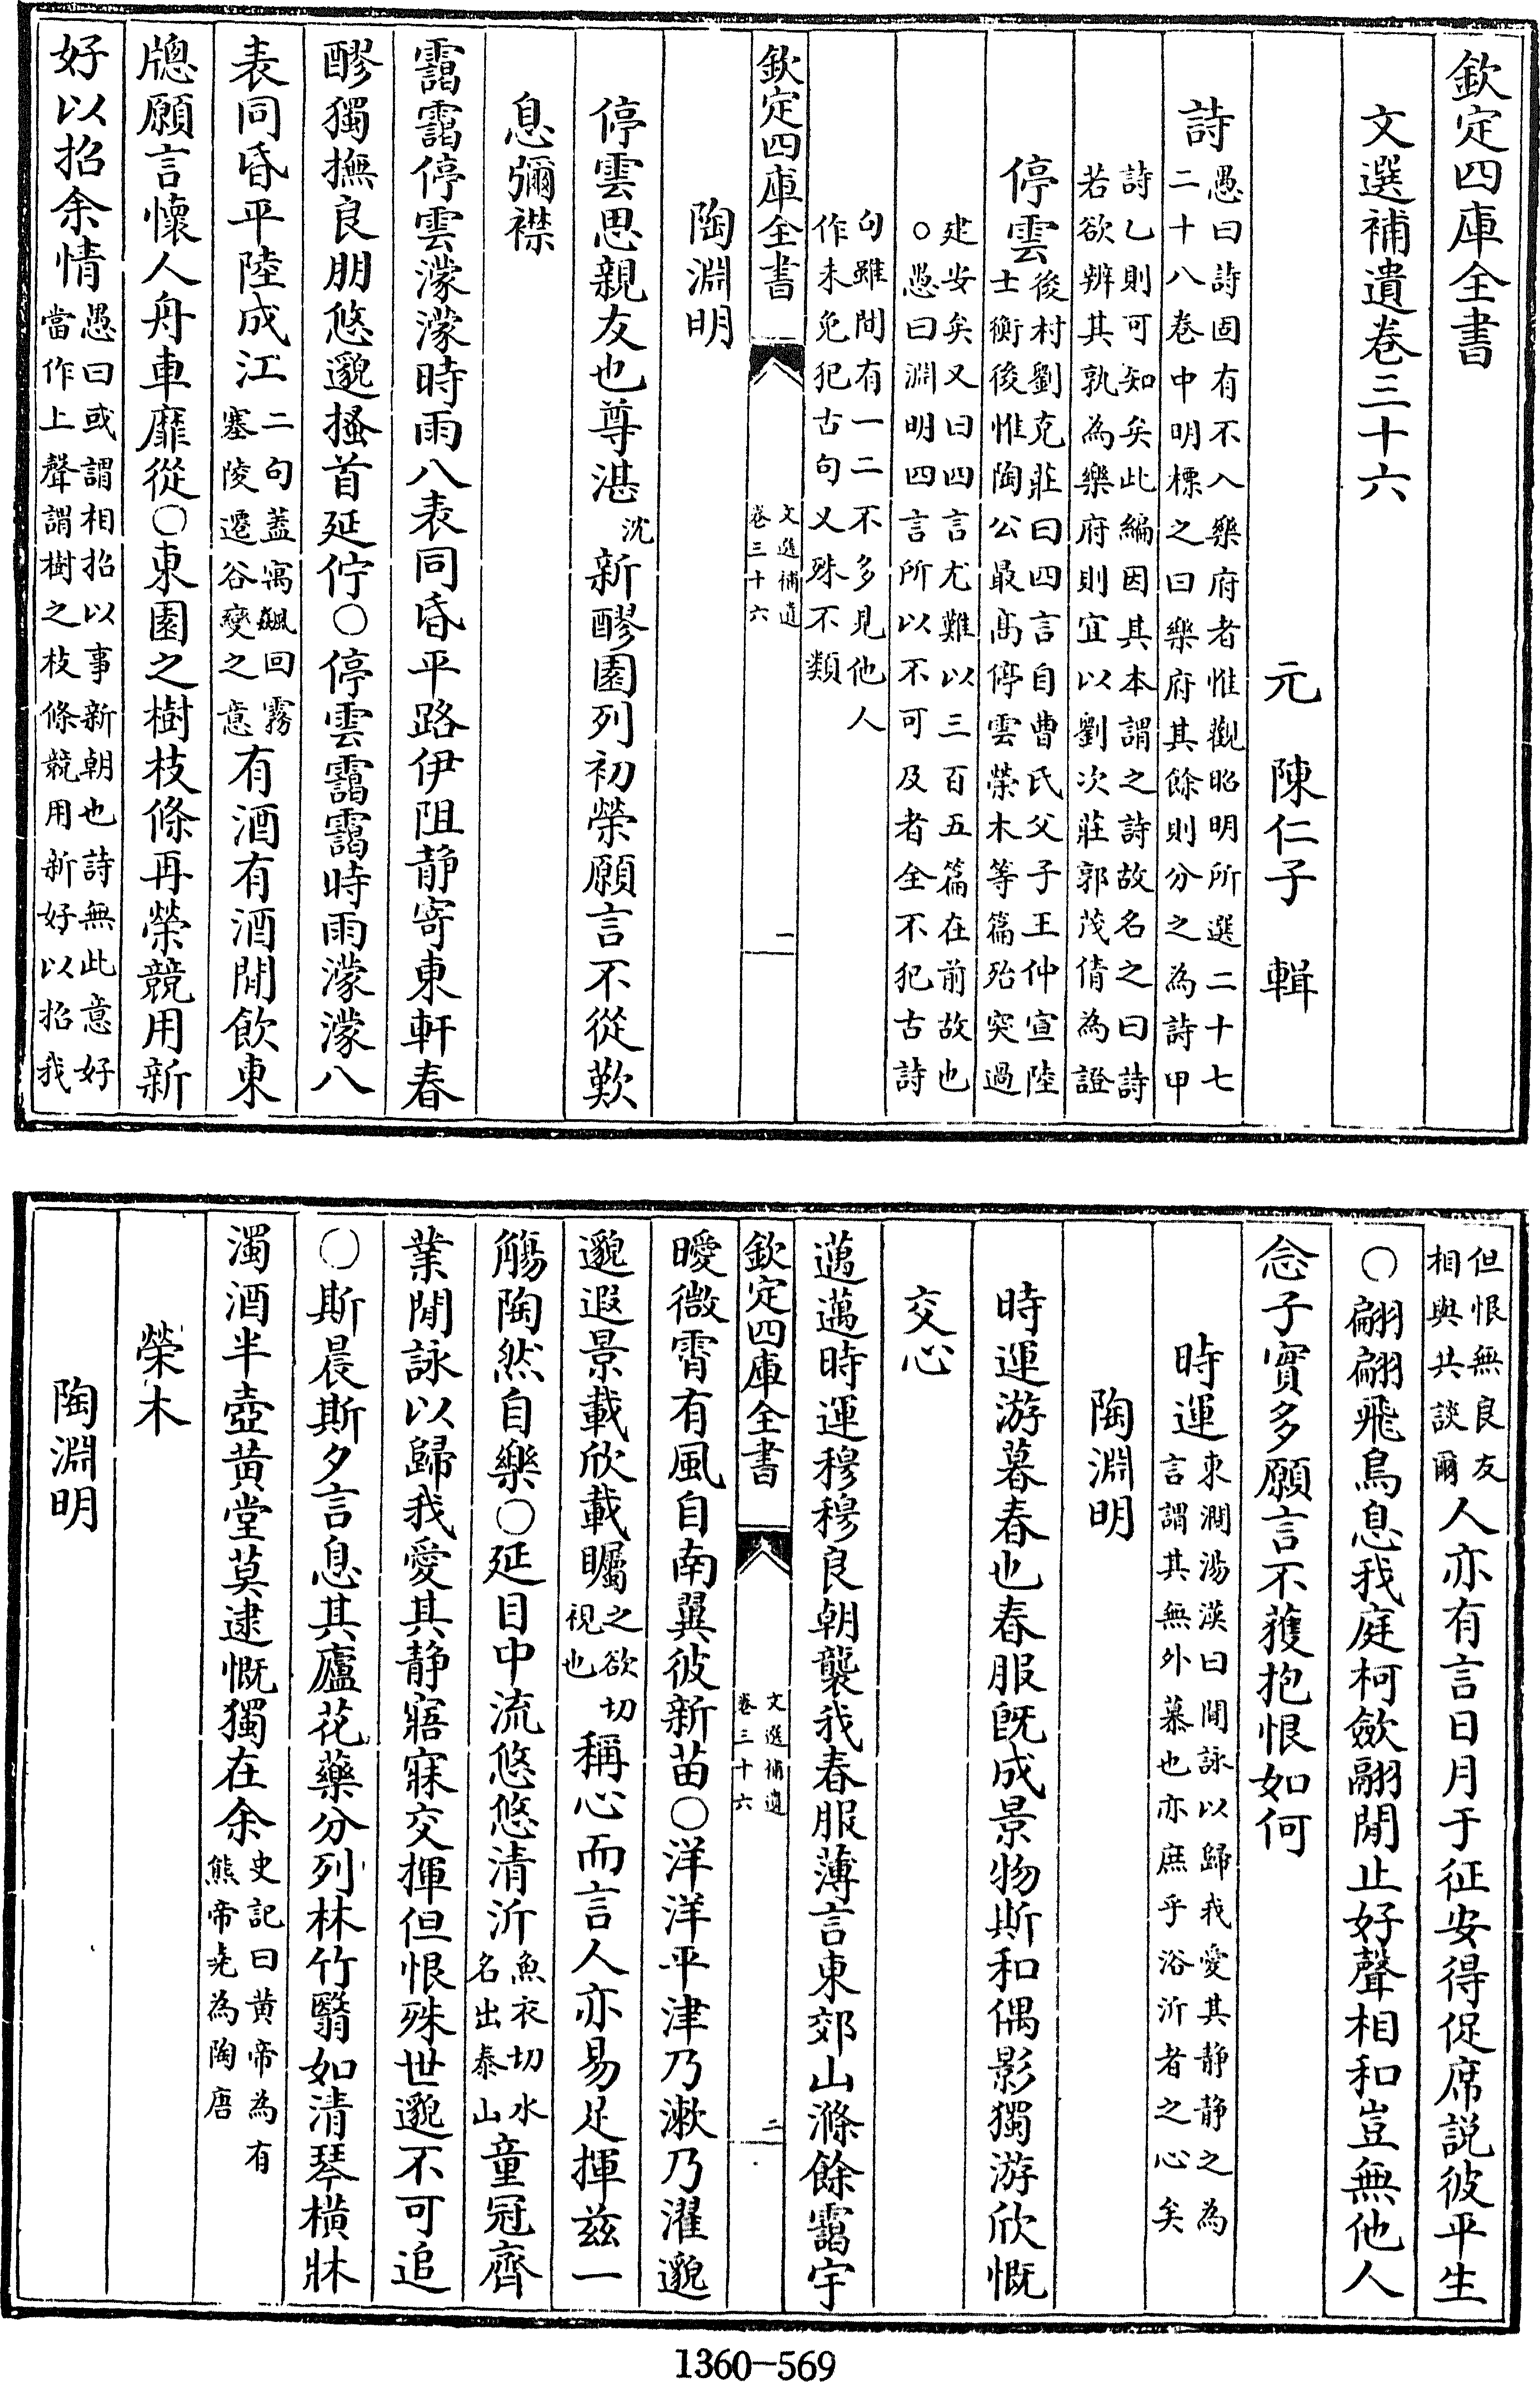 欽定四庫全書
文選補遺卷三十六
元　陳仁子　輯
詩愚曰詩固有不入樂府者惟觀昭明所選二十七
二十八卷中明標之曰樂府其餘則分之為詩甲
詩乙則可知矣此編因其本謂之詩故名之曰詩
若欲辨其孰為樂府則宜以劉次莊郭茂倩為證
停雲後村劉克莊曰四言自曹氏父子王仲宣陸
士衡後惟陶公最高停雲榮木等篇殆突過
建安矣又曰四言尤難以三百五篇在前故也
○愚曰淵明四言所以不可及者全不犯古詩
句雖間有一二不多見他人
作未免犯古句又殊不類
欽定四庫全書
文選補遺
卷三十六
一
陶淵明
停雲思親友也尊湛沈新醪園列初榮願言不從歎
息彌襟
靄靄停雲濛濛時雨八表同昏平路伊阻静寄東軒春
醪獨撫良朋悠邈搔首延佇○停雲靄靄時雨濛濛八
表同昏平陸成江二句蓋寓飆回霧
塞陵遷谷變之意有酒有酒閒飲東
牕願言懷人舟車靡從○東園之樹枝條再榮競用新
好以招余情愚曰或謂相招以事新朝也詩無此意好
當作上聲謂樹之枝條競用新好以招我
但恨無良友
相與共談爾人亦有言日月于征安得促席説彼平生
○翩翩飛鳥息我庭柯斂翮閒止好聲相和豈無他人
念子實多願言不獲抱恨如何
時運東澗湯漢曰閒詠以歸我愛其静静之為
言謂其無外慕也亦庶乎浴沂者之心矣
陶淵明
時運游暮春也春服既成景物斯和偶影獨游欣慨
交心
邁邁時運穆穆良朝襲我春服薄言東郊山滌餘靄宇
欽定四庫全書
文選補遺
卷三十六
二
曖微霄有風自南翼彼新苗○洋洋平津乃漱乃濯邈
邈遐景載欣載矚之欲切
視也稱心而言人亦易足揮兹一
觴陶然自樂○延目中流悠悠清沂魚衣切水
名出泰山童冠齊
業閒詠以歸我愛其静寤寐交揮但恨殊世邈不可追
○斯晨斯夕言息其廬花藥分列林竹翳如清琴橫牀
濁酒半壺黄堂莫逮慨獨在余史記曰黄帝為有
熊帝堯為陶唐
榮木
陶淵明
1360-569